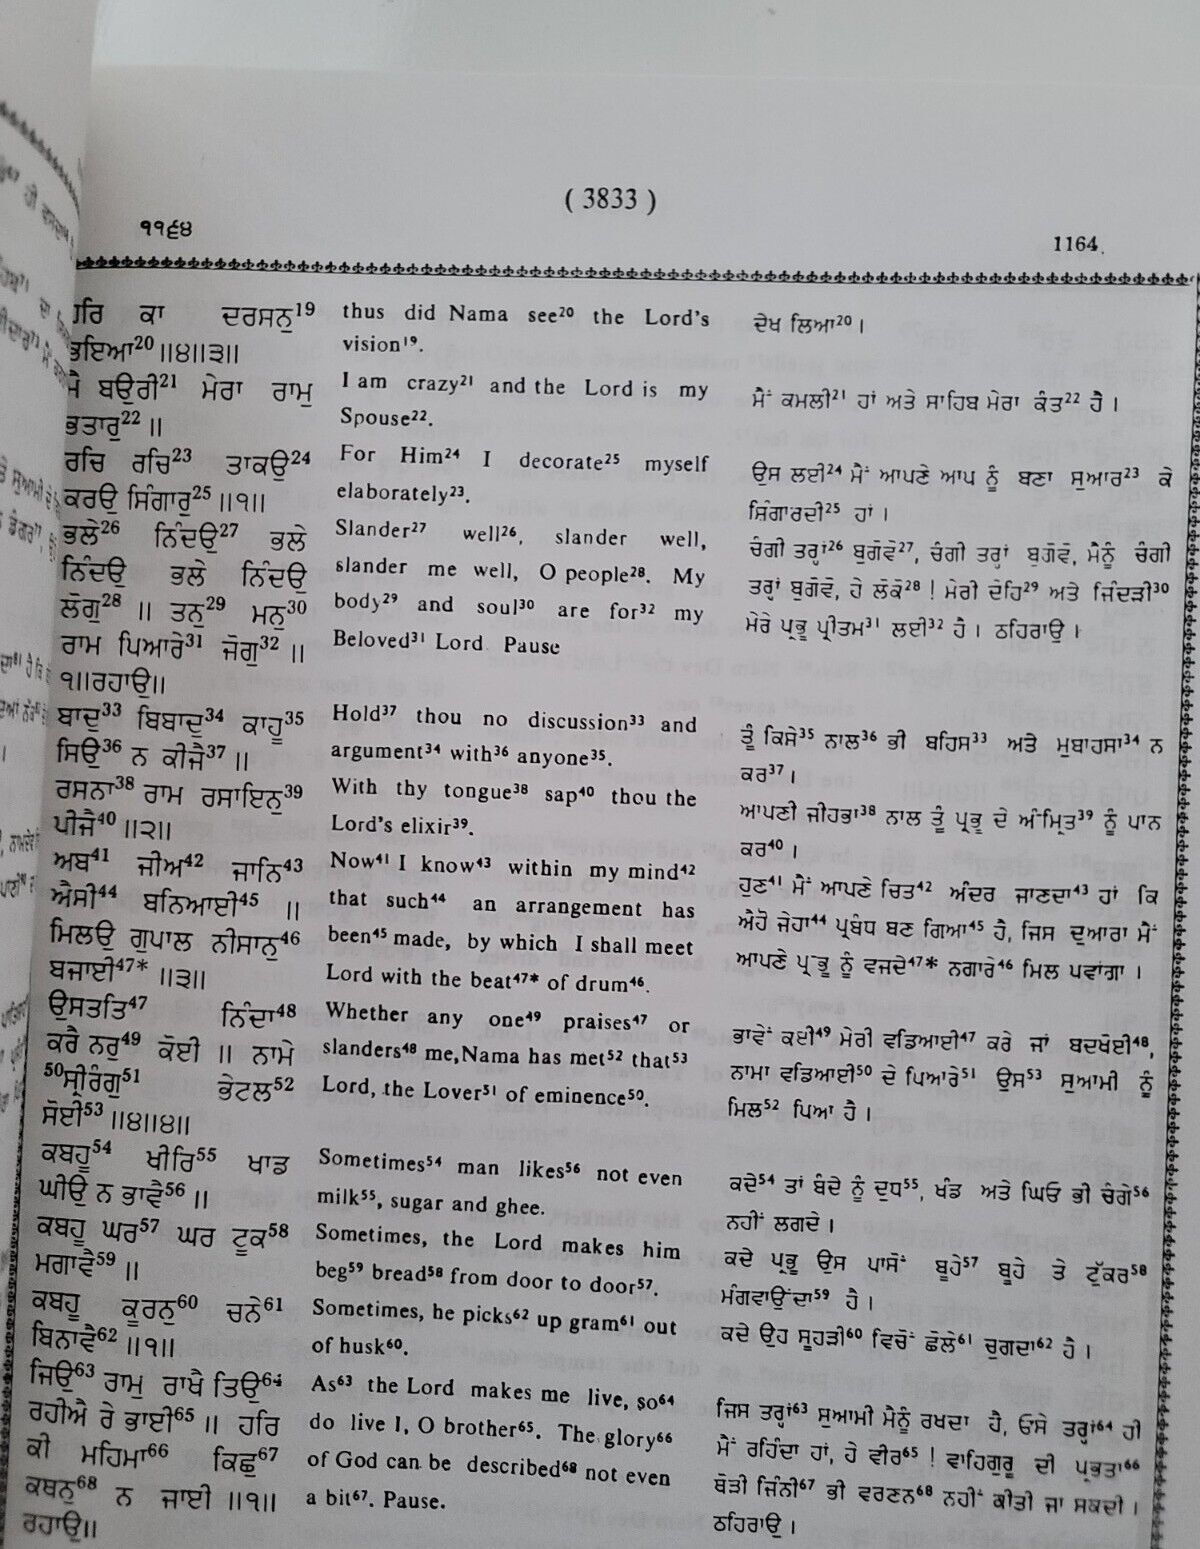 ( 3833 )
੧੧੬੪
1164
ਹਰਿ ਕਾ ਦਰਸਨੁ19
ਭਇਆ20 ॥੪॥੩॥
ਮੈ ਬਉਰੀ21 ਮੇਰਾ ਰਾਮੁ
ਭਤਾਰੁ22 ॥
ਰਚਿ ਰਚਿ23 ਤਾਕਉ24
ਕਰਉ ਸਿੰਗਾਰੁ25 ॥੧॥
ਭਲੇ26 ਨਿੰਦਉ27 ਭਲੇ
ਨਿੰਦਉ ਭਲੇ ਨਿੰਦਉ
ਲੋਗੁ28 ॥ ਤਨੁ29 ਮਨੁ30
ਰਾਮ ਪਿਆਰੇ31 ਜੋਗੁ32 ॥
੧॥ਰਹਾਉ॥
ਬਾਦੁ33 ਬਿਬਾਦੁ34 ਕਾਹੂ35
ਸਿਉ36 ਨ ਕੀਜੈ37 ॥
ਰਸਨਾ38 ਰਾਮ ਰਸਾਇਨੁ39
ਪੀਜੈ40 ॥੨॥
ਅਬ41 ਜੀਅ42 ਜਾਨਿ43
ਐਸੀ44 ਬਨਿਆਈ45 ॥
ਮਿਲਉ ਗੁਪਾਲ ਨੀਸਾਨੁ46
ਬਜਾਈ47* ॥੩॥
ਉਸਤਤਿ47 ਨਿੰਦਾ48
ਕਰੈ ਨਰੁ49 ਕੋਈ ॥ ਨਾਮੇ
50ਸ੍ਰੀਰੰਗੁ51 ਭੇਟਲ52
ਸੋਈ53 ॥੪॥੪॥
ਕਬਹੂ54 ਖੀਰਿ55 ਖਾਡ
ਘੀਉ ਨ ਭਾਵੈ56 ॥
ਕਬਹੂ ਘਰ57 ਘਰ ਟੂਕ58
ਮਗਾਵੈ59 ॥
ਕਬਹੂ ਕੂਰਨੁ60 ਚਨੇ61
ਬਿਨਾਵੈ62 ॥੧॥
ਜਿਉ63 ਰਾਮੁ ਰਾਖੈ ਤਿਉ64
ਰਹੀਐ ਰੇ ਭਾਈ65 ॥ ਹਰਿ
ਕੀ ਮਹਿਮਾ66 ਕਿਛੁ67
ਕਥਨੁ68 ਨ ਜਾਈ ॥੧॥
ਰਹਾਉ॥
thus did Nama see20 the Lord's
vision19.
I am crazy21 and the Lord is my
Spouse22.
For Him24 I decorate25 myself
elaborately23.
Slander27 well26, slander well,
slander me well, O people28. My
body29 and soul30 are for32 my
Beloved31 Lord. Pause
Hold37 thou no discussion33 and
argument34 with36 anyone35.
With thy tongue38 sap40 thou the
Lord's elixir39.
Now41 I know43 within my mind42
that such44 an arrangement has
been45 made, by which I shall meet
Lord with the beat47* of drum46.
Whether any one49 praises47 or
slanders48 me, Nama has met52 that53
Lord, the Lover51 of eminence50.
Sometimes54 man likes56 not even
milk55, sugar and ghee.
Sometimes, the Lord makes him
beg59 bread58 from door to door57.
Sometimes, he picks62 up gram61 out
of husk60.
As63 the Lord makes me live, so64
do live I, O brother65. The glory66
of God can be described68 not even
a bit67. Pause.
ਦੇਖ ਲਿਆ20 ।
ਮੈਂ ਕਮਲੀ21 ਹਾਂ ਅਤੇ ਸਾਹਿਬ ਮੇਰਾ ਕੰਤ22 ਹੈ ।
ਉਸ ਲਈ24 ਮੈਂ ਆਪਣੇ ਆਪ ਨੂੰ ਬਣਾ ਸੁਆਰ23 ਕੇ
ਸ਼ਿੰਗਾਰਦੀ25 ਹਾਂ ।
ਚੰਗੀ ਤਰ੍ਹਾਂ26 ਬੁਗੋਵੋ27, ਚੰਗੀ ਤਰ੍ਹਾਂ ਬੁਗੋਵੋ, ਮੈਨੂੰ ਚੰਗੀ
ਤਰ੍ਹਾਂ ਬੁਗੋਵੋ, ਹੇ ਲੋਕੋ28 ! ਮੇਰੀ ਦੇਹਿ29 ਅਤੇ ਜਿੰਦੜੀ30
ਮੇਰੇ ਪ੍ਰਭੂ ਪ੍ਰੀਤਮ31 ਲਈ32 ਹੈ । ਠਹਿਰਾਉ ।
ਤੂੰ ਕਿਸੇ35 ਨਾਲ36 ਭੀ ਬਹਿਸ33 ਅਤੇ ਮੁਬਾਹਸਾ34 ਨ
ਕਰ37 ।
ਆਪਣੀ ਜੀਹਭਾ38 ਨਾਲ ਤੂੰ ਪ੍ਰਭੂ ਦੇ ਅੰਮ੍ਰਿਤ39 ਨੂੰ ਪਾਨ
ਕਰ40 ।
ਹੁਣ41 ਮੈਂ ਆਪਣੇ ਚਿਤ42 ਅੰਦਰ ਜਾਣਦਾ43 ਹਾਂ ਕਿ
ਐਹੋ ਜੇਹਾ44 ਪ੍ਰਬੰਧ ਬਣ ਗਿਆ45 ਹੈ, ਜਿਸ ਦੁਆਰਾ ਮੈਂ
ਆਪਣੇ ਪ੍ਰਭੂ ਨੂੰ ਵਜਦੇ47* ਨਗਾਰੇ46 ਮਿਲ ਪਵਾਂਗਾ ।
ਭਾਵੇਂ ਕਈ49 ਮੇਰੀ ਵਡਿਆਈ47 ਕਰੇ ਜਾਂ ਬਦਖੋਈ48,
ਨਾਮਾ ਵਡਿਆਈ50 ਦੇ ਪਿਆਰੇ51 ਉਸ53 ਸੁਆਮੀ ਨੂੰ
ਮਿਲ52 ਪਿਆ ਹੈ ।
ਕਦੇ54 ਤਾਂ ਬੰਦੇ ਨੂੰ ਦੁਧ55, ਖੰਡ ਅਤੇ ਘਿਓ ਭੀ ਚੰਗੇ56
ਨਹੀਂ ਲਗਦੇ ।
ਕਦੇ ਪ੍ਰਭੂ ਉਸ ਪਾਸੋਂ ਬੂਹੇ57 ਬੂਹੇ ਤੇ ਟੁੱਕਰ58
ਮੰਗਵਾਉਂਦਾ59 ਹੈ ।
ਕਦੇ ਉਹ ਸੂਹੜੀ60 ਵਿਚੋਂ ਛੋਲੇ61 ਚੁਗਦਾ62 ਹੈ ।
ਜਿਸ ਤਰ੍ਹਾਂ63 ਸੁਆਮੀ ਮੈਨੂੰ ਰਖਦਾ ਹੈ, ਓਸੇ ਤਰ੍ਹਾਂ64 ਹੀ
ਮੈਂ ਰਹਿੰਦਾ ਹਾਂ, ਹੇ ਵੀਰ65 ! ਵਾਹਿਗੁਰੂ ਦੀ ਪ੍ਰਭਤਾ66
ਥੋੜੀ ਜਿੰਨੀ67 ਭੀ ਵਰਣਨ68 ਨਹੀਂ ਕੀਤੀ ਜਾ ਸਕਦੀ ।
ਠਹਿਰਾਉ ।